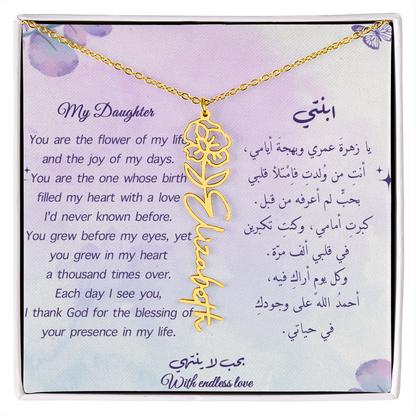 My Daughter
You are the flower of my life
and the joy of my days.
You are the one whose birth
filled my heart with a love
I'd never known before.
You grew before my eyes, yet
you grew in my heart
a thousand times over.
Each day I see you,
I thank God for the blessing of
your presence in my life.
Elizabeth
ابنتي
يا زهرةَ عمري وبهجةَ أيامي،
أنتِ من وُلدتِ فامتلأ قلبي
بحبٍّ لم أعرفه من قبل.
كبرتِ أمامي، وكنتِ تكبرين
في قلبي ألف مرّة.
وكل يومٍ أراكِ فيه،
أحمدُ اللهَ على وجودكِ
في حياتي.
بحب لا ينتهي
With endless love